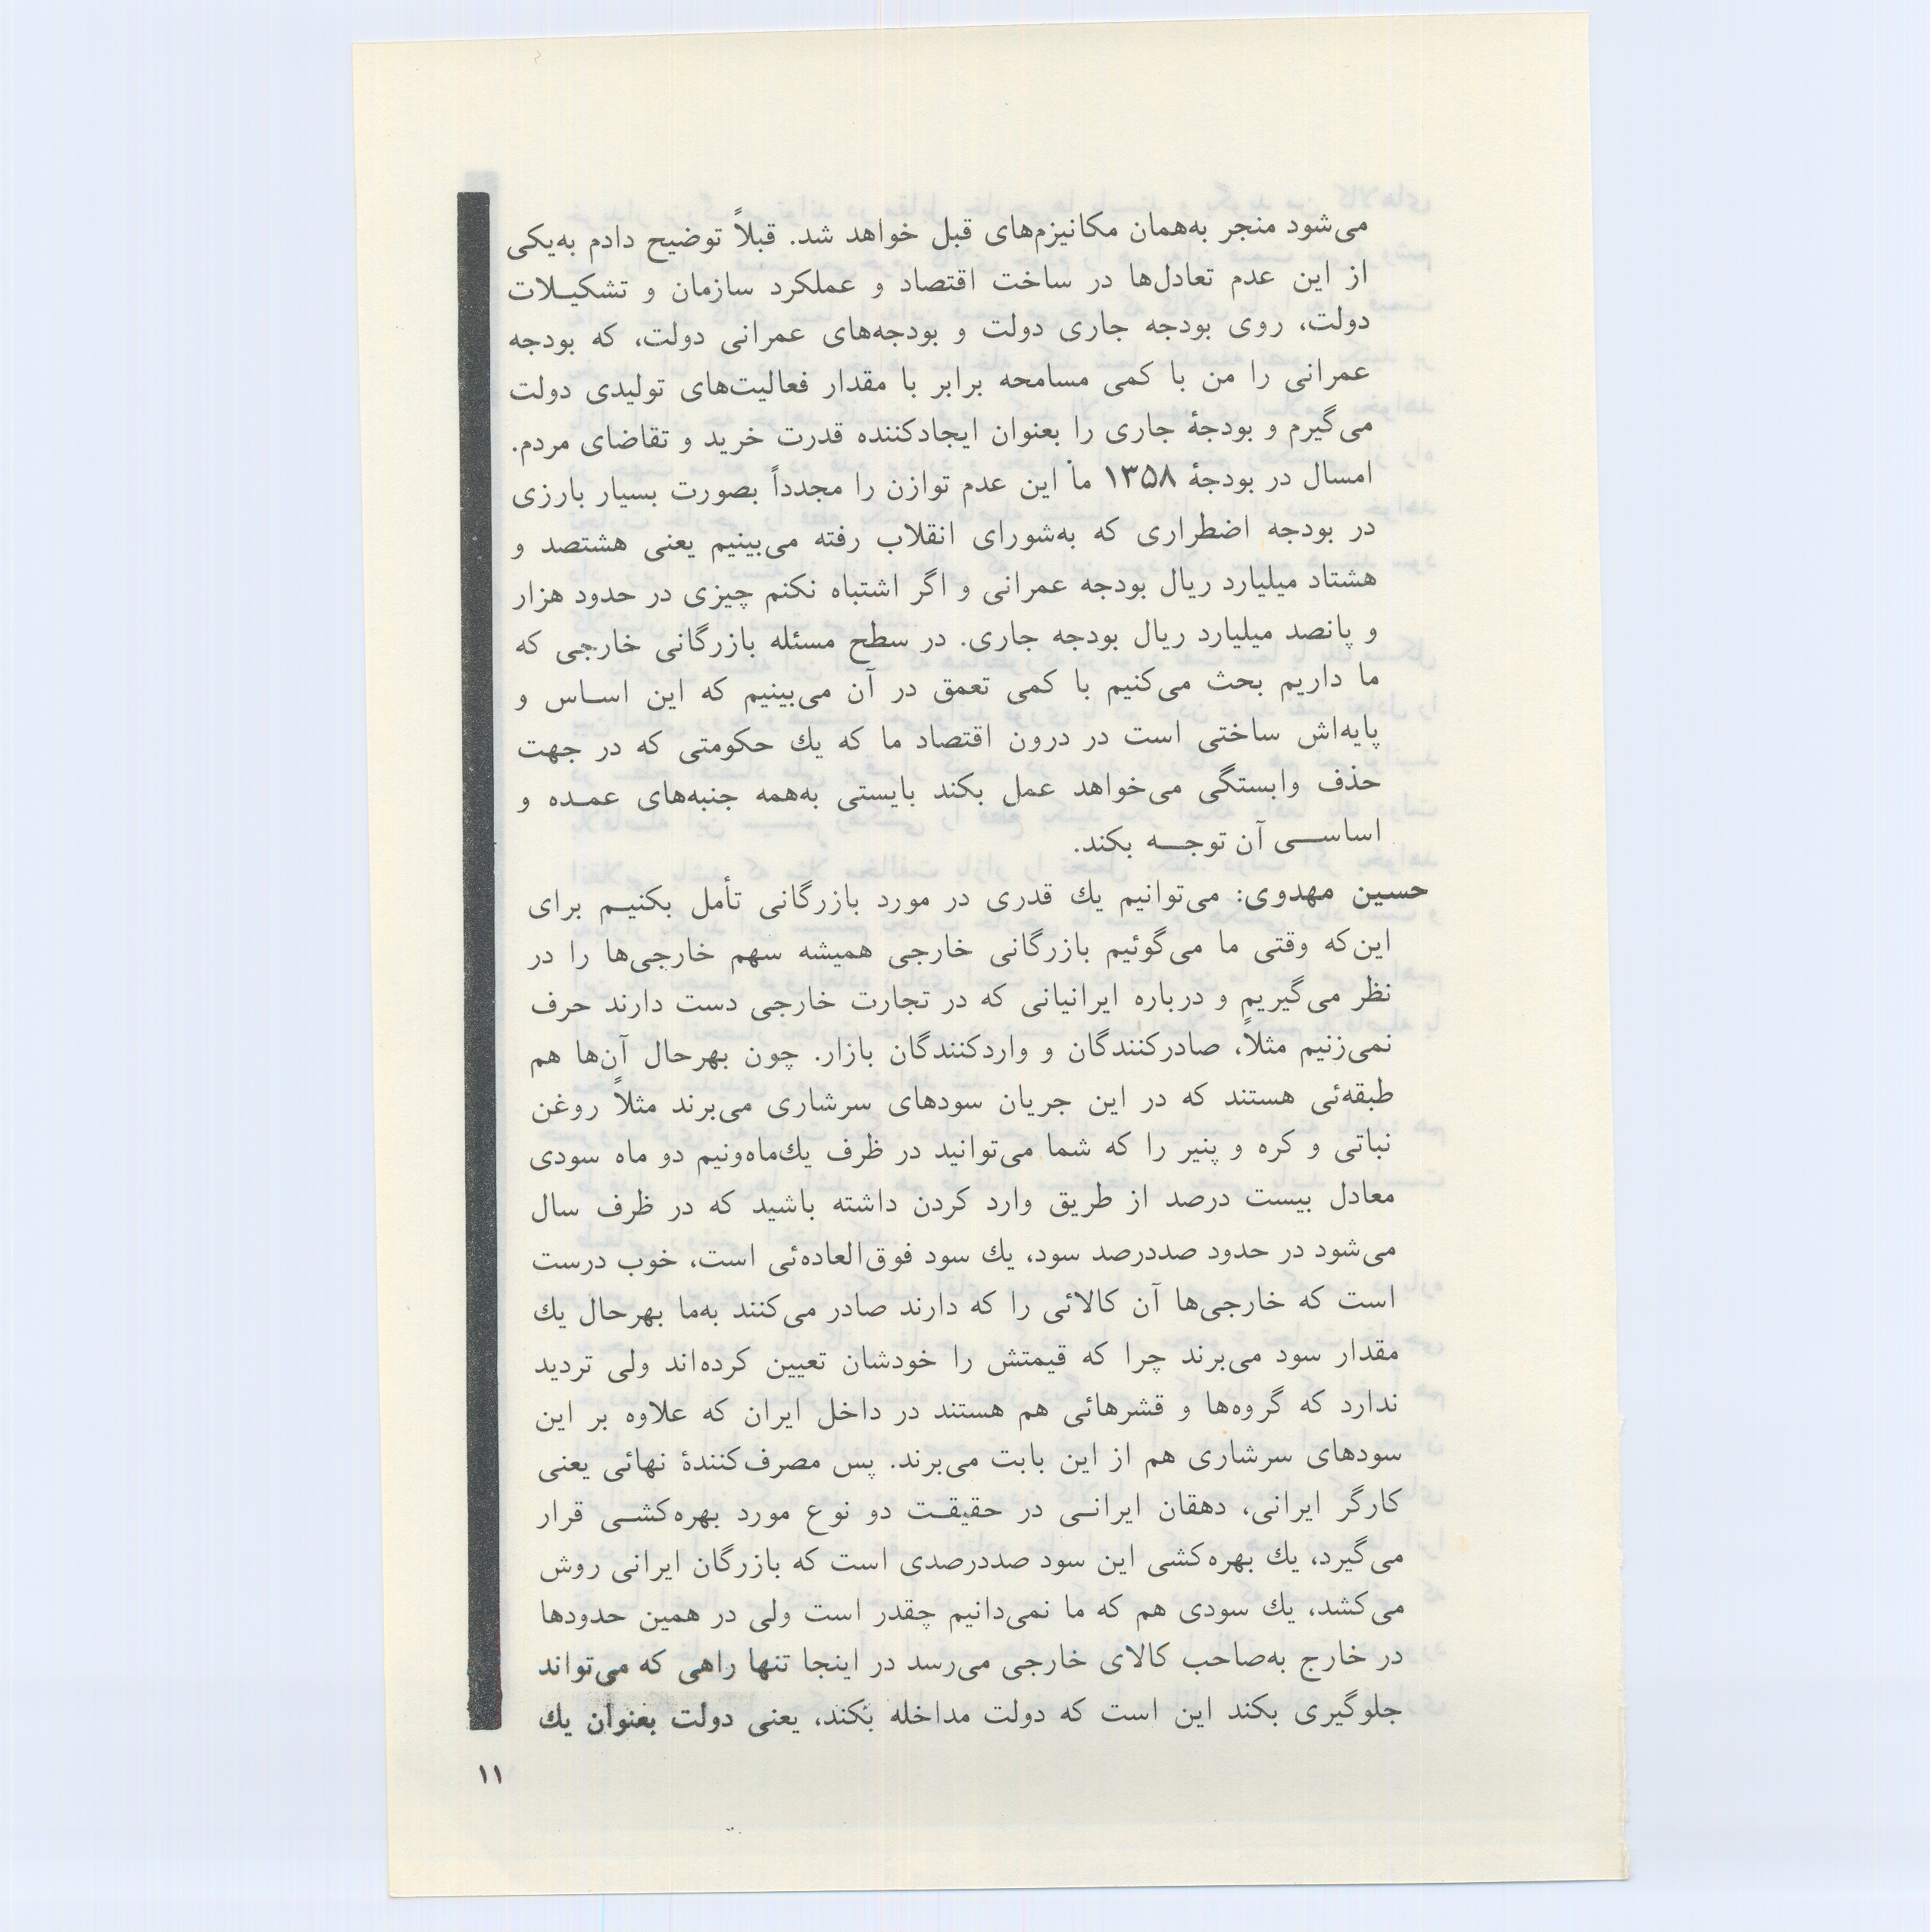 می‌شود منجر به‌همان مکانیزم‌های قبل خواهد شد. قبلاً توضیح دادم به‌یکی
از این عدم تعادل‌ها در ساخت اقتصاد و عملکرد سازمان و تشکیـلات
دولت، روی بودجه جاری دولت و بودجه‌های عمرانی دولت، که بودجه
عمرانی را من با کمی مسامحه برابر با مقدار فعالیت‌های تولیدی دولت
می‌گیرم و بودجهٔ جاری را بعنوان ایجادکننده قدرت خرید و تقاضای مردم.
امسال در بودجهٔ ۱۳۵۸ ما این عدم توازن را مجدداً بصورت بسیار بارزی
در بودجه اضطراری که به‌شورای انقلاب رفته می‌بینیم یعنی هشتصد و
هشتاد میلیارد ریال بودجه عمرانی و اگر اشتباه نکنم چیزی در حدود هزار
و پانصد میلیارد ریال بودجه جاری. در سطح مسئله بازرگانی خارجی که
ما داریم بحث می‌کنیم با کمی تعمق در آن می‌بینیم که این اسـاس و
پایه‌اش ساختی است در درون اقتصاد ما که یك حکومتی که در جهت
حذف وابستگی می‌خواهد عمل بکند بایستی به‌همه جنبه‌های عمـده و
اساســـی آن توجـــه بکند.
حسین مهدوی: می‌توانیم یك قدری در مورد بازرگانی تأمل بکنیـم برای
این‌که وقتی ما می‌گوئیم بازرگانی خارجی همیشه سهم خارجی‌ها را در
نظر می‌گیریم و درباره ایرانیانی که در تجارت خارجی دست دارند حرف
نمی‌زنیم مثلاً، صادرکنندگان و واردکنندگان بازار. چون بهرحال آن‌ها هم
طبقه‌ئی هستند که در این جریان سودهای سرشاری می‌برند مثلاً روغن
نباتی و کره و پنیر را که شما می‌توانید در ظرف یك‌ماه‌ونیم دو ماه سودی
معادل بیست درصد از طریق وارد کردن داشته باشید که در ظرف سال
می‌شود در حدود صددرصد سود، یك سود فوق‌العاده‌ئی است، خوب درست
است که خارجی‌ها آن کالائی را که دارند صادر می‌کنند به‌ما بهرحال یك
مقدار سود می‌برند چرا که قیمتش را خودشان تعیین کرده‌اند ولی تردید
ندارد که گروه‌ها و قشرهائی هم هستند در داخل ایران که علاوه بر این
سودهای سرشاری هم از این بابت می‌برند. پس مصرف‌کنندهٔ نهائی یعنی
کارگر ایرانی، دهقان ایرانـی در حقیقـت دو نوع مورد بهره‌کشـی قرار
می‌گیرد، یك بهره‌کشی این سود صددرصدی است که بازرگان ایرانی روش
می‌کشد، یك سودی هم که ما نمی‌دانیم چقدر است ولی در همین حدودها
در خارج به‌صاحب کالای خارجی می‌رسد در اینجا تنها راهی که می‌تواند
جلوگیری بکند این است که دولت مداخله بکند، یعنی دولت بعنوان یك
۱۱